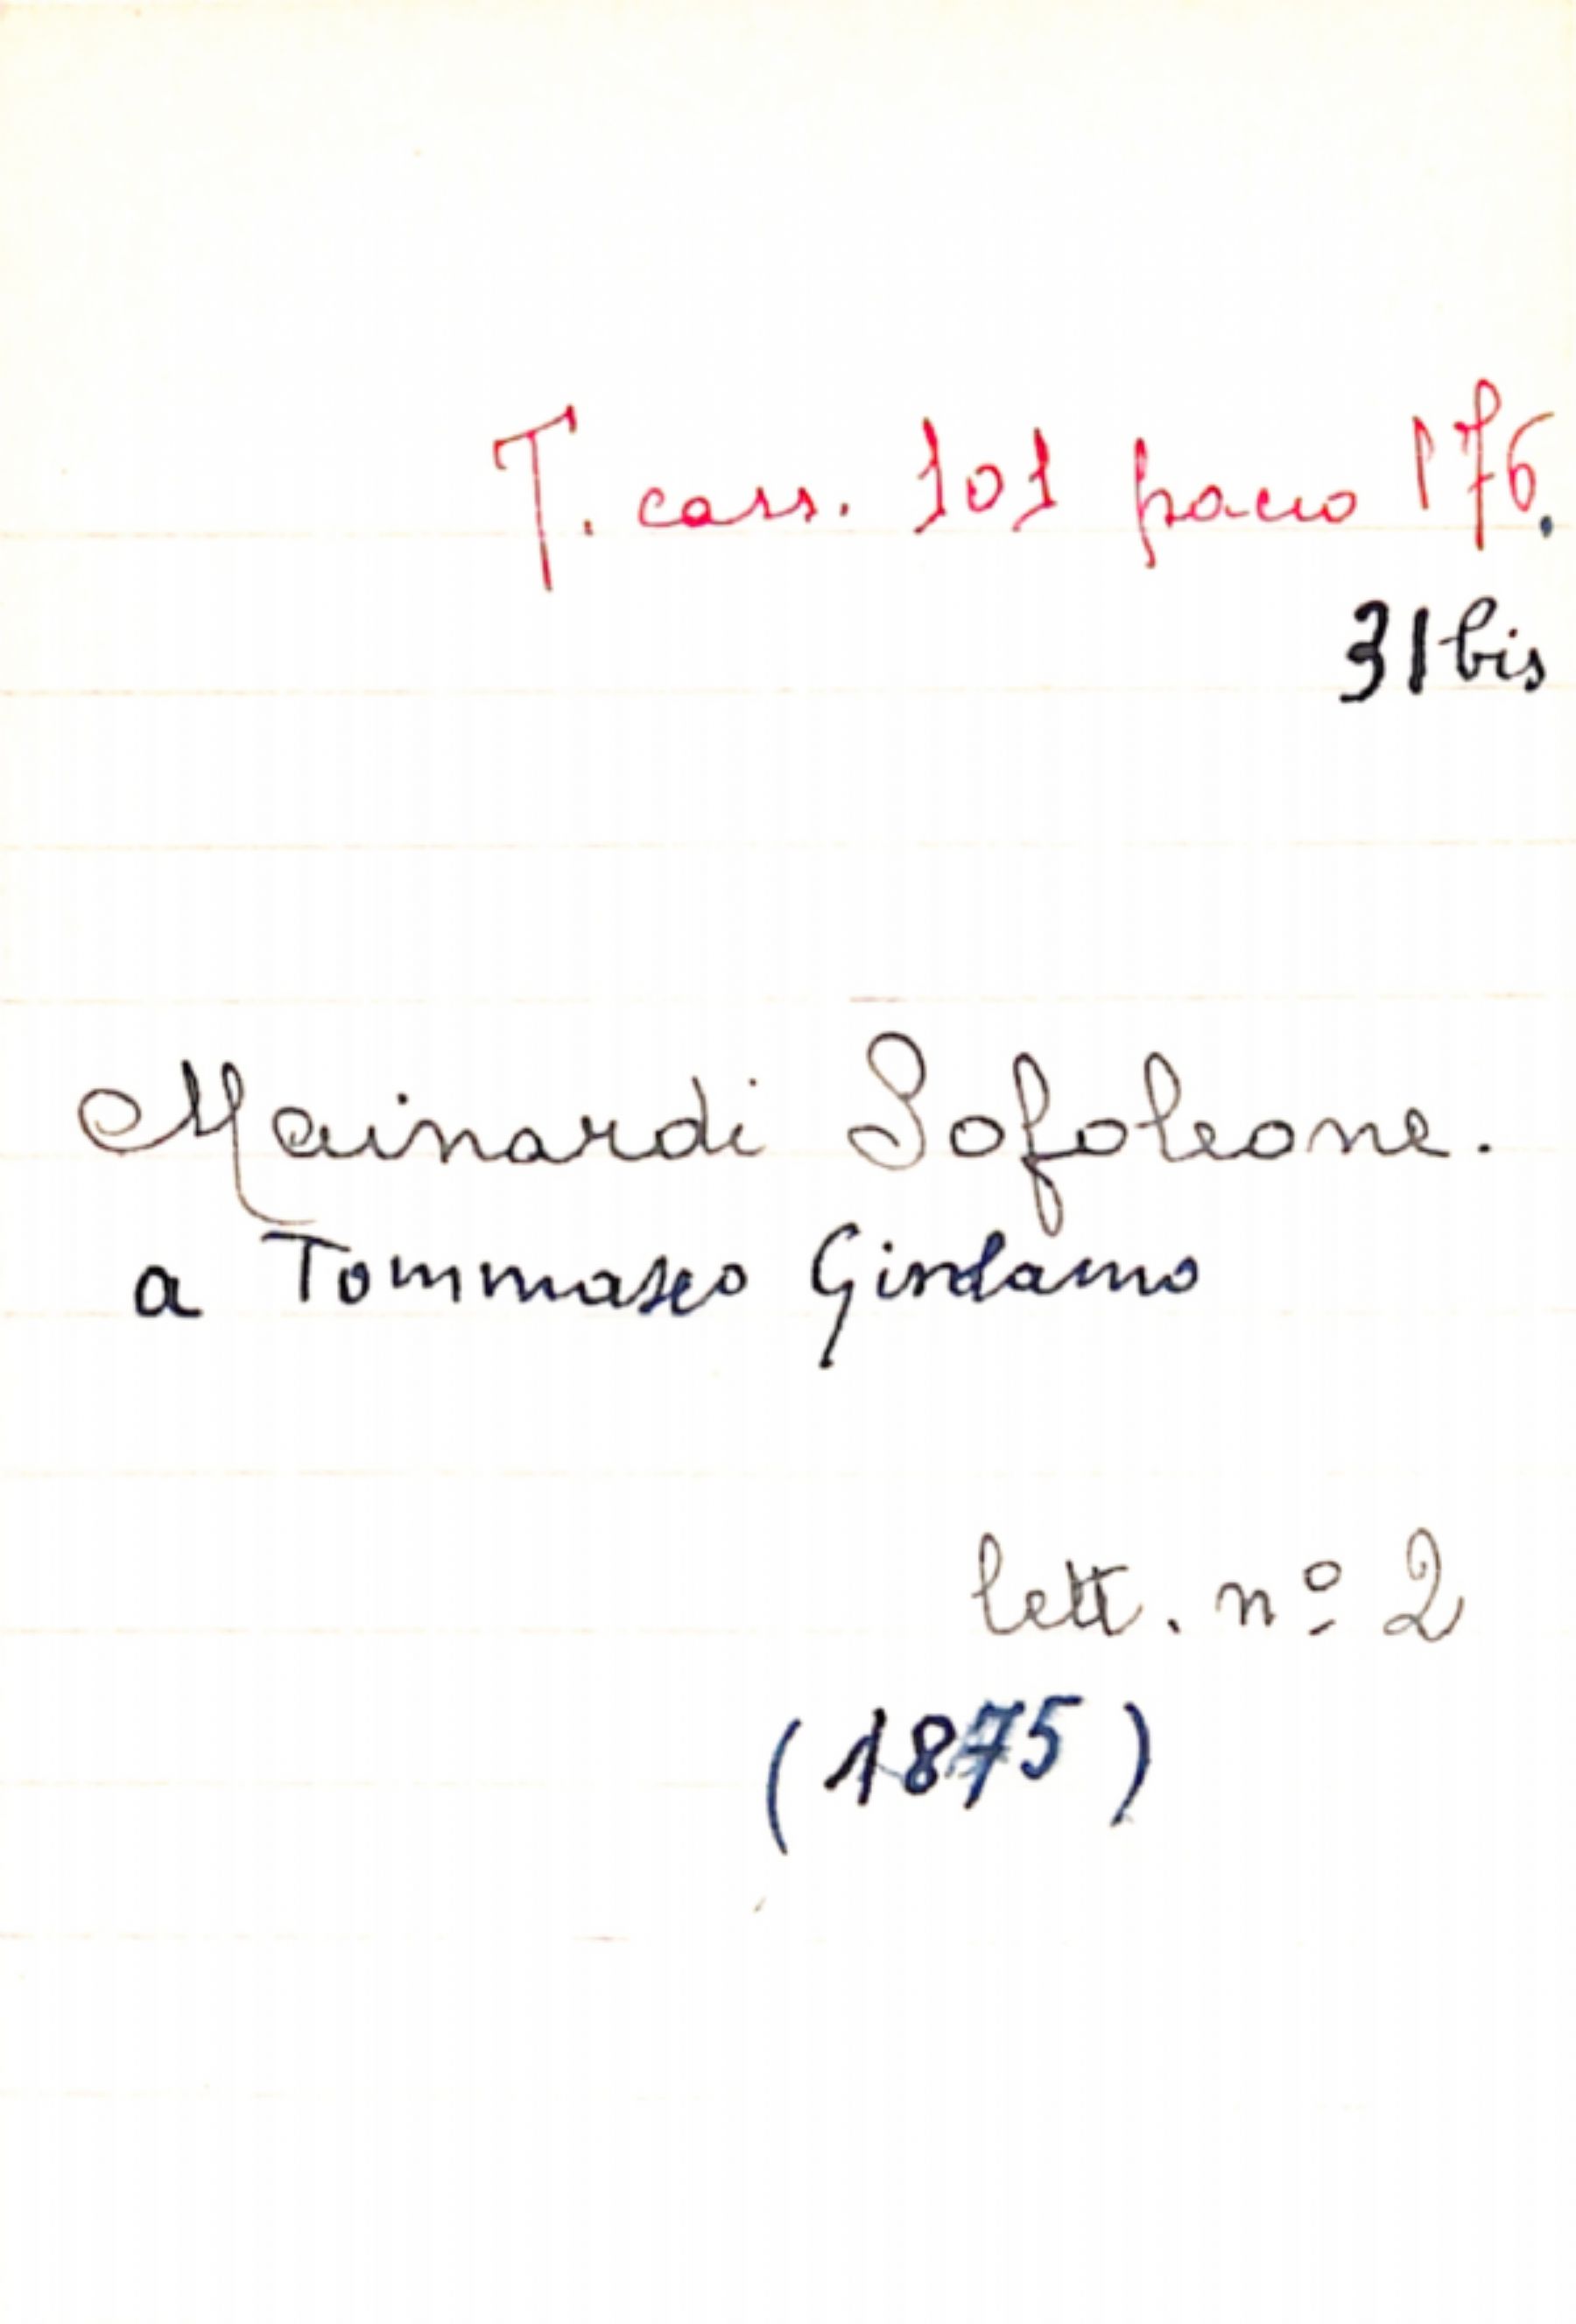 T. cass. 101 pacco 176.
31 bis
Mainardi Sofoleone.
a Tommaseo Girolamo
lett. nº 2
(1875)